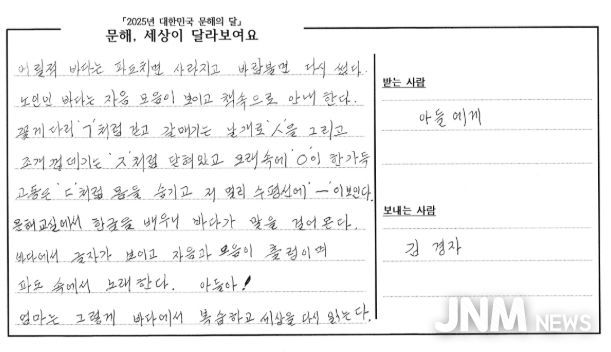 『2025년 대한민국 문해의 달』
문해, 세상이 달라보여요
어릴적 바다는 파도치면 사라지고 바람불면 다시 썼다.
노인인 바다는 자음 모음이 보이고 책속으로 안내 한다.
꽃게 다리 'ㄱ'처럼 걷고 갈매기는 날개로 'ㅅ'을 그리고
조개껍데기는 'ㅈ'처럼 닫혀있고 모래속에 'ㅇ'이 한가득
고동은 'ㄷ'처럼 몸을 숨기고 저 멀리 수평선에 'ㅡ'이보인다.
문해교실에서 한글을 배우니 바다가 말을 걸어 온다.
바다에서 글자가 보이고 자음과 모음이 출렁이며
파도 속에서 노래한다. 아들아!
엄마는 그렇게 바다에서 복습하고 세상을 다시 읽는다.
받는 사람
아들에게
보내는 사람
김경자
JNM NEWS